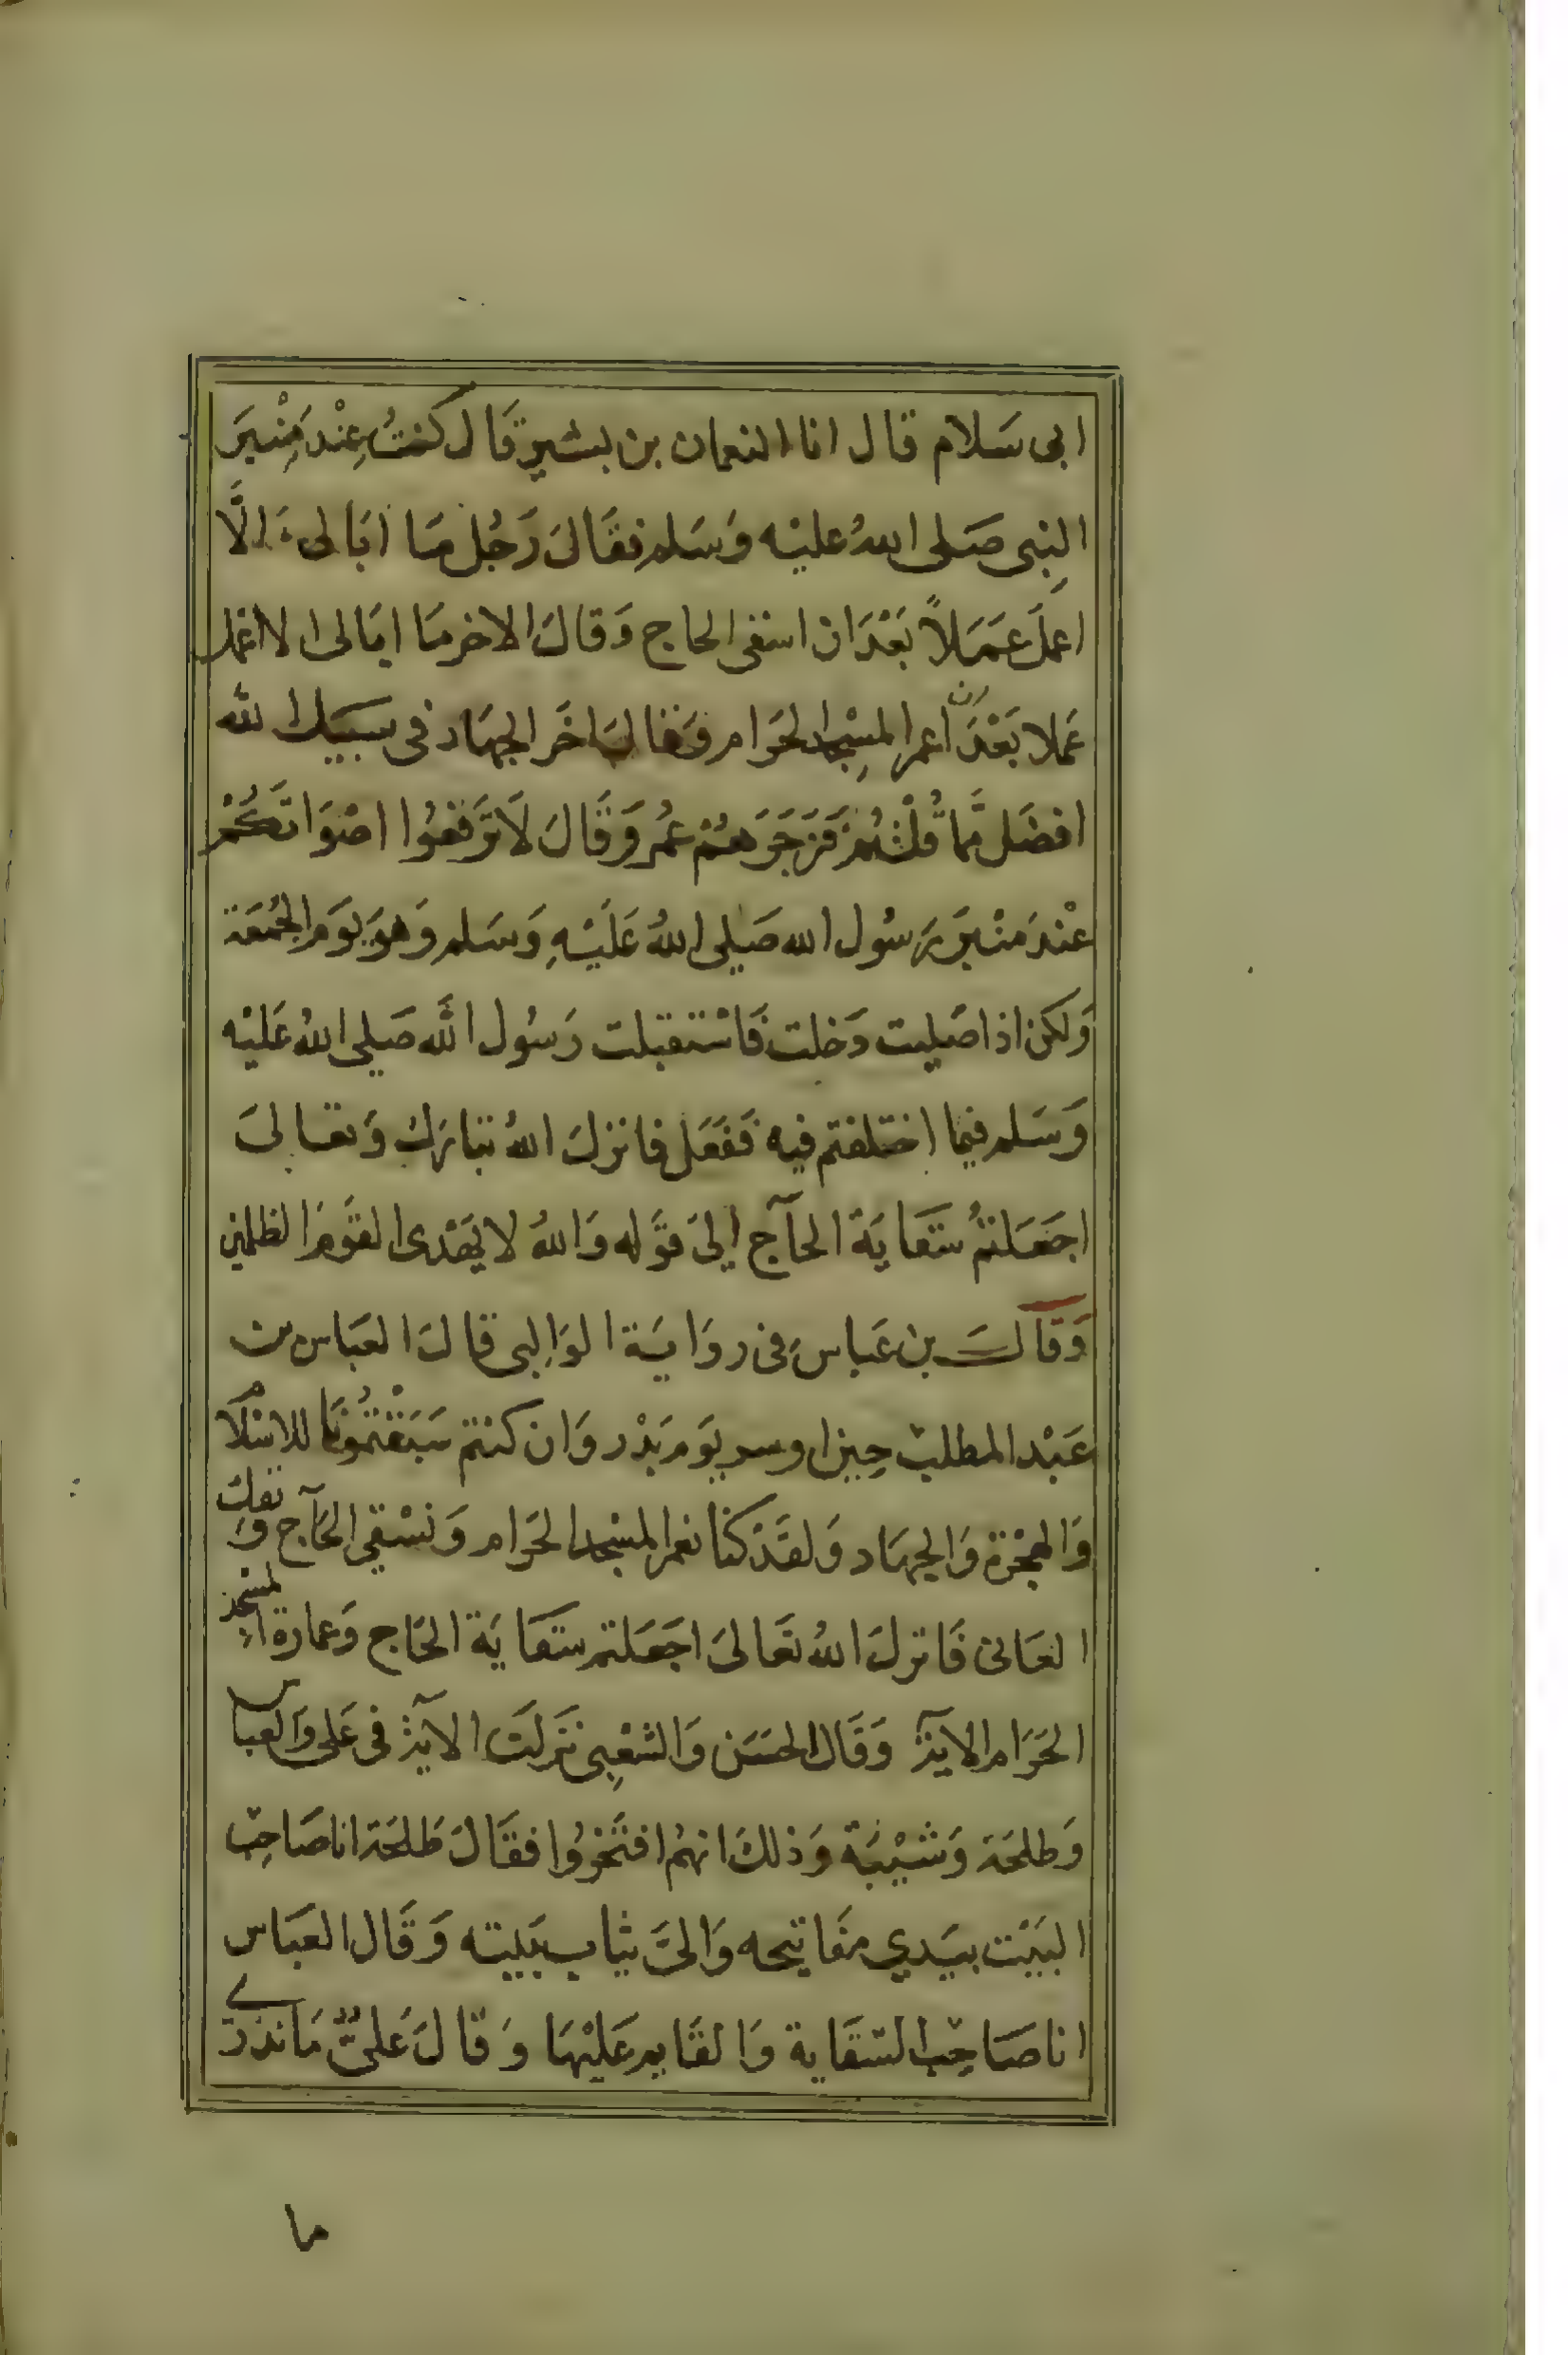 ابى سَلام قال انا النعمان بن بشير قَال كنتُ عِنْدَ مِنْبَر
النبِى صَلى اللهُ عليْه وَسَلم فقَالَ رَجُل مَا اُبَالى اَلَّا
اعمَلَ عَمَلاً بَعْدَ ان اسقى الحاج وَقالَ الاخر مَا ابَالى ان لا اعمل
عَملا بَعْدَ اَن اعمر المسْجِد الحَرَام وَقالَ اخَر الجهَاد فى سَبيل الله
افضَل مّما قُلْتُمْ فَزَجَرَهُمْ عُمر وَقَالَ لَا تَرفَعُوا اصْوَاتَكُمْ
عنْدَ منْبَر رَسُول الله صَلى اللهُ عَلَيْهِ وَسَلم وَهوَ يوَم الجُمُعَة
وَلكن اذا صَليت دَخلت فَاسْتفتيت رَسُول الله صَلى اللهُ عَليْه
وَسَلم فيما اختلفتم فيه فَفَعَل فانزلَ اللهُ تبَارَك وَتعَالىَ
اجَعَلتمُ سقَايَة الحآج اِلىَ قوَله وَاللهُ لا يَهْدى القوَمَ الظلمين
وَقَالَ بن عَباس فى روَايَة الوَالِبى قالَ العبَاس بن
عَبْد المطلب حِين اسر يوَم بَدْر وَان كنتم سَبَقْتمُونَا للاسْلَام
وَالهجْرَة وَالجهَاد وَلقَدْ كنا نعمر المسْجد الحَرَام وَنسْقِى الحَآج وَنفك
العَانى فَانزلَ اللهُ تعَالىَ اجَعَلتم سقَايَة الحَاج وَعمارة المسْجد
الحَرَام الايَة وَقَال الحسَن وَالشعْبِى نَزلَت الآية فى عَلى وَالعبَاس
وَطلحَة وَشَيْبَة وَذلكَ انهُم افتَخرُوا فقَالَ طَلحَة انا صَاحِب
البَيْت بيَدي مفَاتيحه وَالىَّ ثياب بَيته وَقَال العَبَاس
انا صَاحِب السّقَاية وَالقَايم عَليْهَا وَقالَ عَلىّ مَا ندْرے
ما